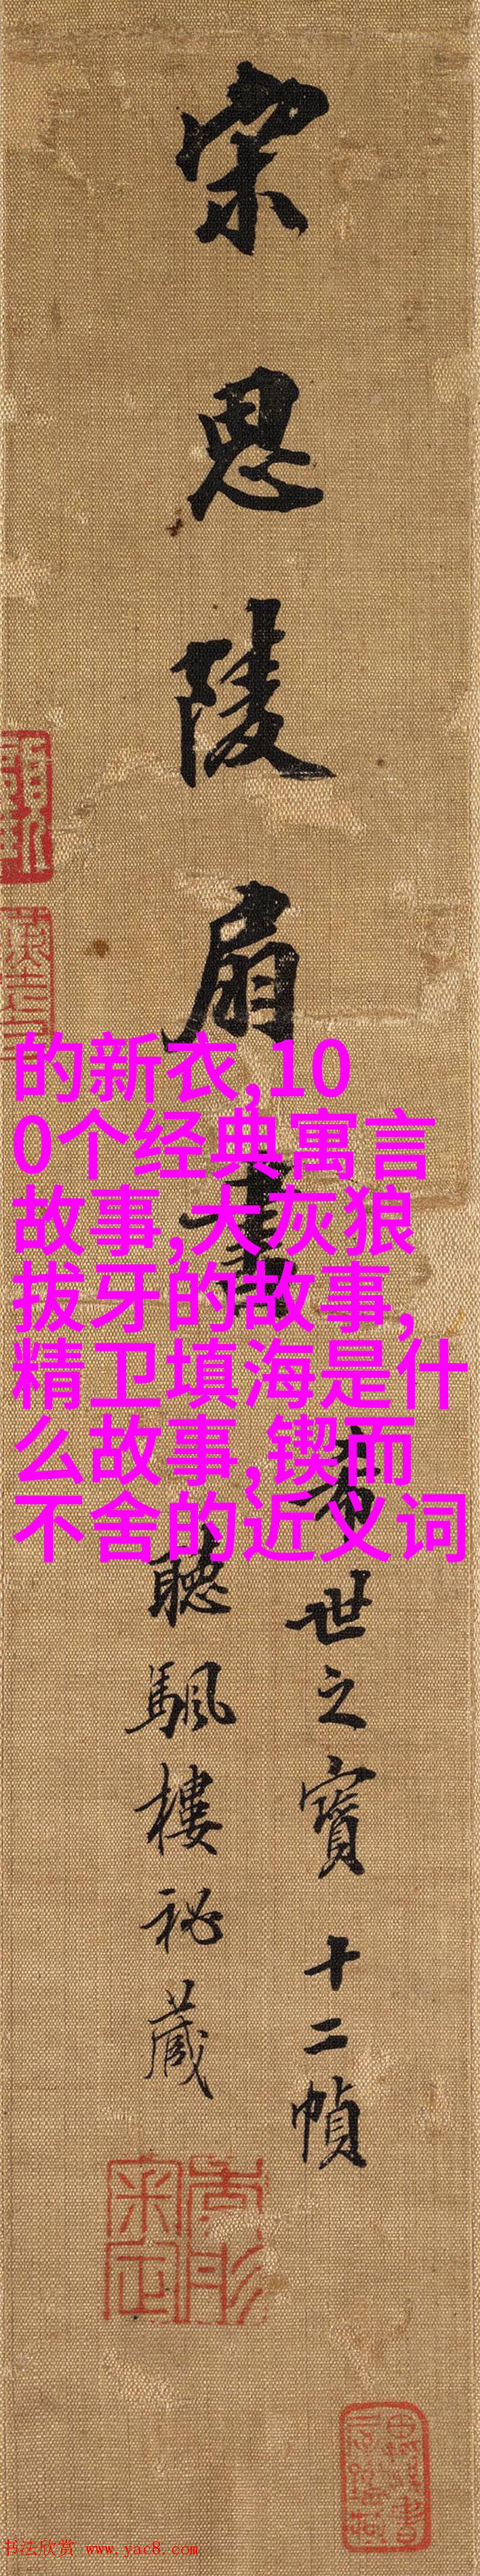 宋思陵扇
希世之寶十二幀
聽颿樓祕藏
的新衣,10
0个经典寓言
故事,大灰狼
拔牙的故事,
精卫填海是什
么故事,锲而
不舍的近义词
书法欣赏 www.yac8.com